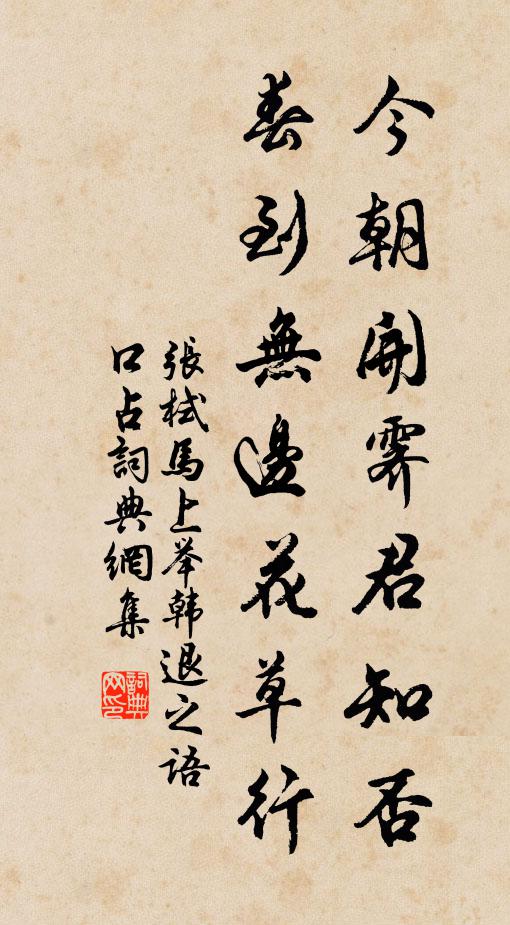 今朝開霽君知否
春到無邊花草行
張栻馬上举韩退之语
口占詞典網集
詞典
网印